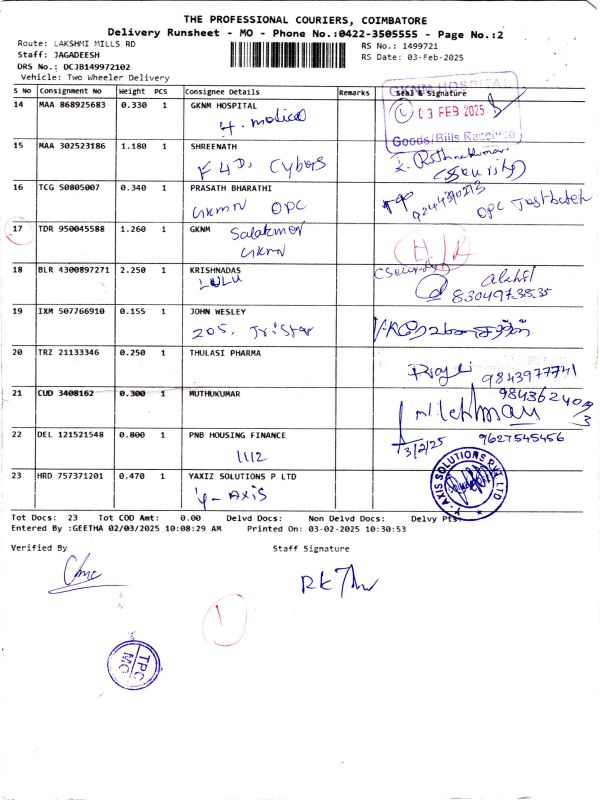 THE PROFESSIONAL COURIERS, COIMBATORE
Delivery Runsheet - MO - Phone No.:0422-3505555 - Page No.:2
Route: LAKSHMI MILLS RD
RS No.: 1499721
Staff: JAGADEESH
RS Date: 03-Feb-2025
DRS No.: DCJB149972102
Vehicle: Two Wheeler Delivery
S No Consignment No Weight PCS Consignee Details Remarks Seal & Signature
14 MAA 868925683 0.330 1 GKNM HOSPITAL
GKNM HOSPITAL
03 FEB 2025
Goods/Bills Received
15 MAA 302523186 1.180 1 SHREENATH
(Security)
16 TCG 50805007 0.340 1 PRASATH BHARATHI
GKMN OPC
OPC
17 TDR 950045588 1.260 1 GKNM
GKMN
18 BLR 4300897271 2.250 1 KRISHNADAS
LULU
19 IXM 507766910 0.155 1 JOHN WESLEY
205. Tristar
20 TRZ 21133346 0.250 1 THULASI PHARMA
9843977741
21 CUD 3408162 0.300 1 MUTHUKUMAR
22 DEL 121521548 0.800 1 PNB HOUSING FINANCE
1112
3/2/25 9627545456
23 HRD 757371201 0.470 1 YAXIZ SOLUTIONS P LTD
Y-AXIS
Y-AXIS SOLUTIONS PVT LTD
Tot Docs: 23 Tot COD Amt: 0.00 Delvd Docs: Non Delvd Docs: Delvy Pts:
Entered By :GEETHA 02/03/2025 10:08:29 AM Printed On: 03-02-2025 10:30:53
Verified By Staff Signature
TPC
MO